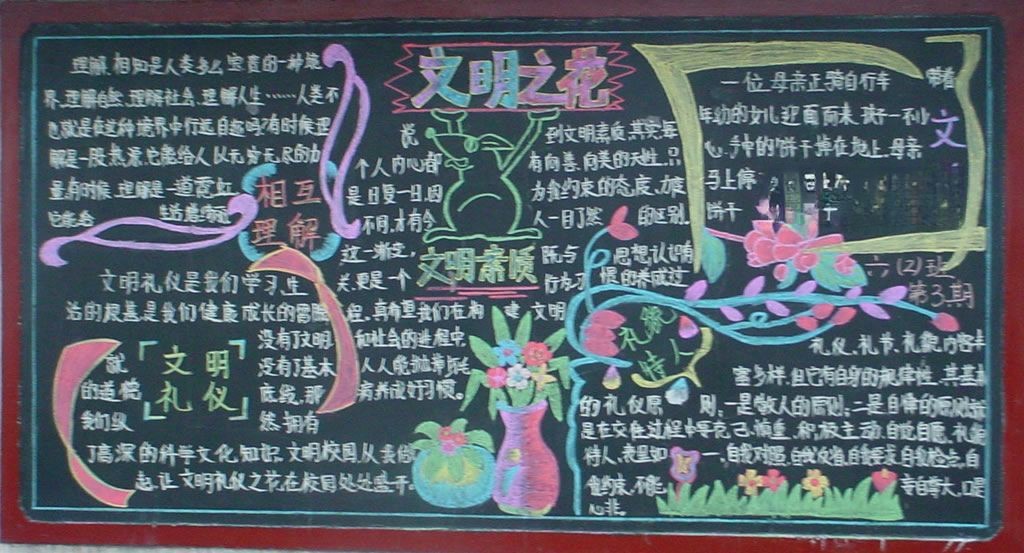 文明之花
理解、相知是人类多么宝贵的一种境
界,理解自然,理解社会,理解人生……人类不
也就是在这种境界中行远自迩吗?有时候,理
解是一股热源,它能给人以无穷无尽的力
量,有时候,理解是一道霓虹,
相互
理解
文明礼仪是我们学习、生
活的根基,是我们健康成长的
没有了文明,
就 没有了基本
的道德 底线,那
我们纵 然拥有
了高深的科学文化知识
文明校园,从我做
起,让文明礼仪之花在校园处处盛开。
文明
礼仪
说 到文明素质,其实每
个人内心都 有向善、向美的天性,只
是日复一日,因 为自我约束的态度、力度
不同,才有今 人一目了然 的区别。
这一渐变, 既与 思想认识有
关,更是一个 行为习 惯的养成过
程,真希望我们在构 建 文明
和社会的进程中,
人人能抛弃陋
病,养成好习惯。
文明素质
一位母亲正骑自行车 带着
年幼的女儿迎面而来,孩子一不小
心,手中的饼干掉在地上,母亲
马上停
饼干
文
六(2)班
第3期
礼貌
待人
礼仪、礼节、礼貌内容丰
富多样,但它有自身的规律性,其基本
的礼仪原 则:一是敬人的原则;二是自律的原则,就
是在交往过程中要克己、慎重、积极主动、自觉自愿、礼貌
待人、表里如 一,自我对照,自我反省,自我要求,自我检点,自
我约束,不能 妄自尊大,口是
心非。